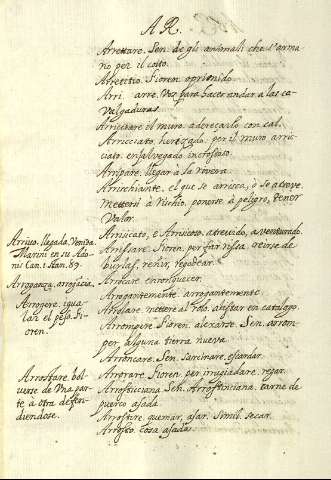 A R.
Arrettare. Sen. de gli animali che s'arma
no per il coito.
Arretito. Fioren. oprimido.
Arri. arre. Voz para hacer andar a las ca-
valgaduras.
Arricciare il muro. aderecarlo con cal.
Arricciato, herizado. per il muro arric-
ciato. ensalvegado
Arripare. llegar a la rivera.
Arrischiante, el que se arrisca, o se atreve.
mettersi à rischio, ponerse à peligro, tener
valor.
Arriscato, e Arrisicato. atrevido, aventurado.
Arrissare. Fioren. per far rissa. reirse de
burlas, reñir, regodear.
Arrocare enronquecer.
Arrogantemente arrogantemente.
Arrolare. mettere al rolo. alistar en catalogo.
Arrompere Fioren. alexarse. Sen. arrom-
per, alguna tierra nueva.
Arroncare. Sen. Sarcinare. escardar.
Arrorare. Fioren. per irrugiadare. regar.
Arrosticciana. Sen. Arrostinciana. carne de
puerco asada.
Arrostire. quemar, asar. Simil. secar.
Arrosto. cosa asada.
Arrivo. llegada, Venida.
Marini en su Ado-
ni Can. 1. stan. 89.
Arroganza. arrogãcia.
Arrogere. igua-
lar el peso. Fi-
oren.
Arrostare. bol-
verse de Una par-
te à otra defen-
diendose.